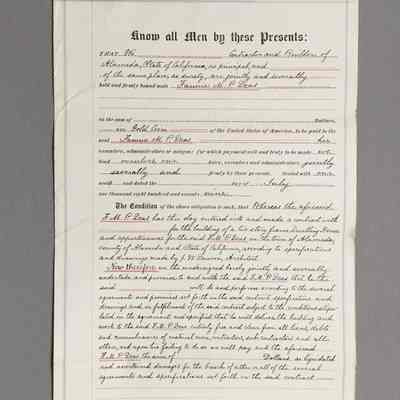 Know all Men by these Presents:
THAT We Contractor and Builder of
Alameda, State of California, as principal, and
of the same place, as surety, are jointly and severally
held and firmly bound unto Fannie M. P. Deas
in the sum of Dollars,
in Gold Coin of the United States of America, to be paid to the
said Fannie M. P. Deas her
executors, administrators or assigns; for which payment well and truly to be made
bind ourselves our heirs, executors and administrators, jointly
and severally firmly by these presents. Sealed with
seals and dated the day of July
one thousand eight hundred and
The Condition of the above obligation is such, that Whereas the aforesaid
F. M. P. Deas has this day entered into and made a contract with
for the building of a two story frame Dwelling House
and appurtenances for the said F. M. P. Deas in the town of Alameda,
county of Alameda and State of California, according to specifications
and drawings made by J. W. Dawson, Architect.
Now therefore, we the undersigned hereby jointly and severally
undertake and promise to and with the said F. M. P. Deas that the
said will do and perform according to the several
agreements and promises set forth in the said contract specifications and
drawings and in fulfillment of the said contract subject to the conditions stipu-
lated in the agreement and specified that he will deliver the building and
work to the said F. M. P. Deas entirely free and clear from all liens, debts
and encumbrances of material men, contractors, sub contractors and all
others, and upon his failing to do so will pay unto the aforesaid
F. M. P. Deas the sum of Dollars as liquidated
and ascertained damages for the breach of either or all of the several
agreements and specifications set forth in the said contract